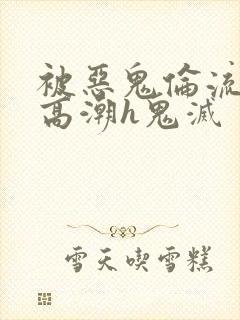 被惡鬼倫流
高潮h鬼滅
雪天喫雪糕